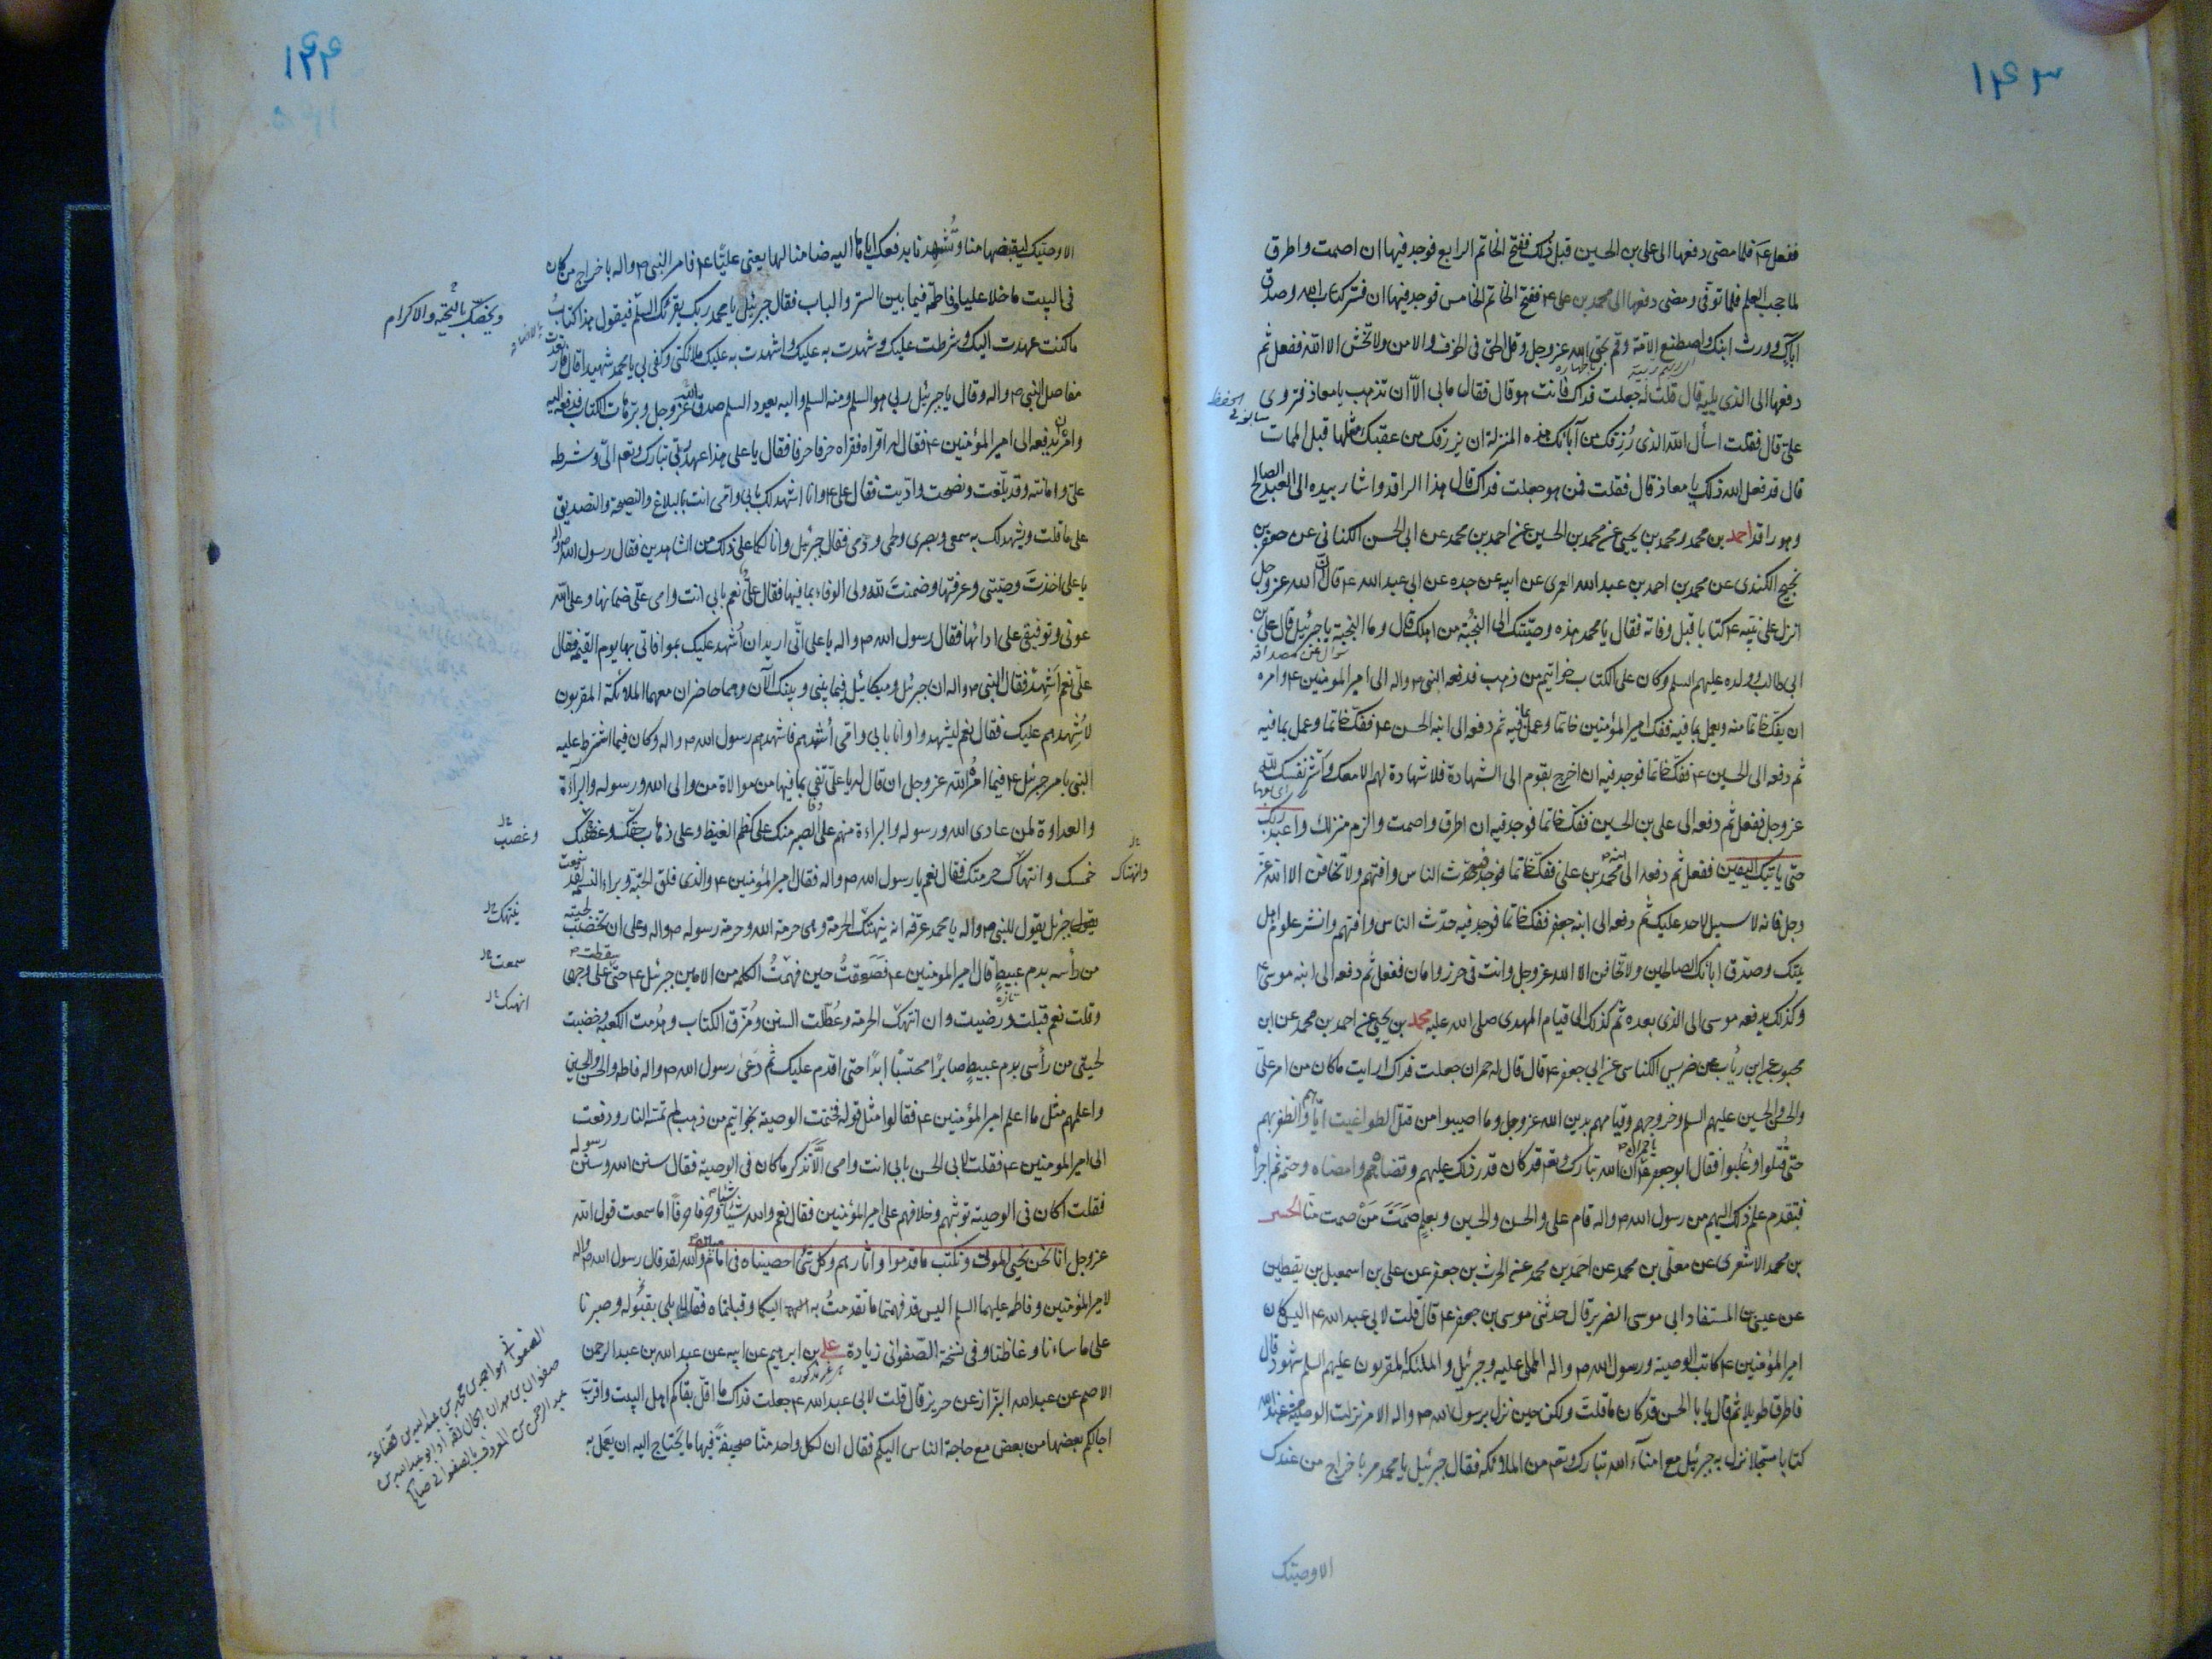 ١۴٣
ففعل ع فلما مضى دفعها الى على بن الحسين قبل ذلك ففتح الخاتم الرابع فوجد فيها ان اصمت واطرق
لما حجب العلم فلما توفى ومضى دفعها الى محمد بن على ع ففتح الخاتم الخامس فوجد فيها ان فسّر كتاب الله وصدق
اباك وورث ابنك واصطنع الامة وقم بحق الله عز وجل وقل الحق فى الخوف والامن ولا تخش الا الله ففعل ثم
دفعها الى الذى يليه قال قلت له جعلت فداك فانت هو قال فقال ما بى الّا ان تذهب يا معاذ فتروى
علىّ قال فقلت اسأل الله الذى رزقك من آبائك هذه المنزلة ان يرزقك من عقبك مثلها قبل الممات
قال قد فعل الله ذلك يا معاذ قال فقلت فمن هو جعلت فداك قال هذا الراقد واشار بيده الى العبد الصالح
وهو راقد احمد بن محمد ومحمد بن يحيى عن محمد بن الحسين عن احمد بن محمد عن ابى الحسن الكنانى عن جعفر بن
نجيح الكندى عن محمد بن احمد بن عبد الله العمرى عن ابيه عن جده عن ابى عبد الله ع قال ان الله عز وجل
انزل على نبيه ع كتابا قبل وفاته فقال يا محمد هذه وصيّتك الى النجبة من اهلك قال وما النجبة يا جبرئيل قال على بن
ابى طالب وولده عليهم السلم وكان على الكتاب خواتيم من ذهب فدفعه النبى ص واله الى امير المؤمنين ع وامره
ان يفك خاتما منه ويعمل بما فيه ففك امير المؤمنين خاتما وعمل بما فيه ثم دفعه الى ابنه الحسن ع ففك خاتما وعمل بما فيه
ثم دفعه الى الحسين ع ففك خاتما فوجد فيه ان اخرج بقوم الى الشهادة فلا شهادة لهم الا معك واشر نفسك لله
عز وجل ففعل ثم دفعه الى على بن الحسين ففك خاتما فوجد فيه ان اطرق واصمت والزم منزلك واعبد ربك
حتى ياتيك اليقين ففعل ثم دفعه الى ابنه محمد بن على ففك خاتما فوجد فيه حدّث الناس وافتهم ولا تخافن الا الله عز
وجل فانه لا سبيل لاحد عليك ثم دفعه الى ابنه جعفر ففك خاتما فوجد فيه حدّث الناس وافتهم وانشر علوم اهل
بيتك وصدّق آبائك الصالحين ولا تخافن الا الله عز وجل وانت فى حرز وامان ففعل ثم دفعه الى ابنه موسى ع
وكذلك يدفعه موسى الى الذى بعده ثم كذلك الى قيام المهدى صلى الله عليه محمد بن يحيى عن احمد بن محمد عن ابن
محبوب عن ابن رئاب عن ضريس الكناسى عن ابى جعفر ع قال قال له حمران جعلت فداك ارايت ما كان من امر على
والحسن والحسين عليهم السلم وخروجهم وقيامهم بدين الله عز وجل وما اصيبوا من قتل الطواغيت اياهم والظفر بهم
حتى قُتلوا وغُلبوا فقال ابو جعفر ع يا حمران ان الله تبارك وتعالى قد كان قدر ذلك عليهم وقضاه وامضاه وحتمه ثم اجراه
فبتقدم علم ذلك اليهم من رسول الله ص واله قام على والحسن والحسين وبعلمٍ صَمَتَ مَنْ صمت منّا الحسين
بن محمد الاشعرى عن معلّى بن محمد عن احمد بن محمد عن الحرث بن جعفر عن على بن اسمعيل بن يقطين
عن عيسى بن المستفاد ابى موسى الضرير قال حدثنى موسى بن جعفر ع قال قلت لابى عبد الله ع اليس كان
امير المؤمنين ع كاتب الوصية ورسول الله ص واله المملى عليه وجبرئيل والملئكة المقربون عليهم السلم شهود قال
فاطرق طويلا ثم قال يا ابا الحسن قد كان ما قلت ولكن حين نزل برسول الله ص واله الامر نزلت الوصية من عند الله
كتابا مسجلا نزل به جبرئيل مع امنآء الله تبارك وتعالى من الملائكة فقال جبرئيل يا محمد مر باخراج من عندك
الا وصيّك
١۴۴
الا وصيّك ليقبضها منا وتُشهدنا بدفعك اياها اليه ضامنا لها يعنى عليّا ع فامر النبى ص واله باخراج من كان
فى البيت ما خلا عليا وفاطمة فيما بين الستر والباب فقال جبرئيل يا محمد ربك يقرئك السلم فيقول هذا كتاب
ويخصك بالتحية والاكرام
ما كنت عهدت اليك وشرطت عليك وشهدت به عليك واشهدت به عليك ملائكتى وكفى بى يا محمد شهيدا قال فارتعدت
مفاصل النبى ص واله وقال يا جبرئيل ربى هو السلم ومنه السلم واليه يعود السلم صدق الله عز وجل وبرّ هات الكتاب فدفعه اليه
وامره بدفعه الى امير المؤمنين ع فقال له اقراه فقراه حرفا حرفا فقال يا على هذا عهد ربى تبارك وتعالى الىّ وشرطه
علىّ وامانته وقد بلّغت ونصحت وادّيت فقال على ع وانا اشهد لك بابى وامى انت بالبلاغ والنصيحة والتصديق
على ما قلت ويشهد لك به سمعى وبصرى ولحمى ودمى فقال جبرئيل وانا لكما على ذلك من الشاهدين فقال رسول الله ص واله
يا على اخذتَ وصيّتى وعرفتها وضمنتَ لله ولى الوفاء بما فيها فقال على نعم بابى انت وامى علىّ ضمانها وعلى الله
عونى وتوفيقى على ادائها فقال رسول الله ص واله يا على انّى اريد ان اُشهد عليك بموافاتى بها يوم القيمة فقال
علىّ نعم اَشهِد فقال النبى ص واله ان جبرئيل وميكائيل فيما بينى وبينك الآن وهما حاضران معهما الملائكة المقربون
لاُشهدهم عليك فقال نعم ليشهدوا وانا بابى وامى اُشهدهم فاشهدهم رسول الله ص واله وكان فيما اشترط عليه
النبى بامر جبرئيل ع فيما امره الله عز وجل ان قال له يا علىّ تفى بما فيها من موالاة من والى الله ورسوله والبراءة
والعداوة لمن عادى الله ورسوله والبراءة منهم على الصبر منك على كظم الغيظ وعلى ذهاب حقك وغصبك
وغصب
خمسك وانتهاك حرمتك فقال نعم يا رسول الله ص واله فقال امير المؤمنين ع والذى فلق الحبّة وبراء النسمة لقد سمعت
وانتهاك
جبرئيل يقول للنبى ص واله يا محمد عرّفه انه ينهتك الحرمة وهى حرمة الله وحرمة رسوله ص واله وعلى ان تخضب لحيته
من رأسه بدم عبيط قال امير المؤمنين ع فصَعِقتُ حين فهمتُ الكلمة من الامين جبرئيل ع حتى سقطت على وجهى
سمعت
وقلت نعم قبلت ورضيت وان انتهكَ الحرمة وعُطّلت السنن ومُزّق الكتاب وهُدّمت الكعبة وخضبت
لحيتى من رأسى بدم عبيط صابرًا محتسبًا ابدًا حتى اقدم عليك ثم دعى رسول الله ص واله فاطمة والحسن والحسين
واعلمهم مثل ما اعلم امير المؤمنين ع فقالوا مثل قوله فختمت الوصية بخواتيم من ذهب لم تمسّه النار ودفعت
الى امير المؤمنين ع فقلت لابى الحسن بابى انت وامى اَلا تذكر ما كان فى الوصية فقال سنن الله وسنن رسوله
فقلت اكان فى الوصية توثّبهم وخلافهم على امير المؤمنين فقال نعم والله شيئا شيئا وحرفا حرفا اما سمعت قول الله
عز وجل انا نحن نحيى الموتى ونكتب ما قدموا واثارهم وكل شئ احصيناه فى امام مبين والله لقد قال رسول الله ص واله
لامير المؤمنين وفاطمة عليهما السلم اليس قد فهمتما ما تقدمتُ به اليكما وقبلتماه فقالا بلى بقبوله وصبرنا
على ما ساءنا وغاظنا وفى نسخة الصّفوانى زيادة على بن ابرهيم عن ابيه عن عبد الله بن عبد الرحمن
الاصم عن عبد الله البزّاز عن حريز قال قلت لابى عبد الله ع جعلت فداك ما اقلّ بقاكم اهل البيت واقرب
اجالكم بعضها من بعض مع حاجة الناس اليكم فقال ان لكل واحد منّا صحيفةً فيها ما يحتاج اليه ان يعمل به